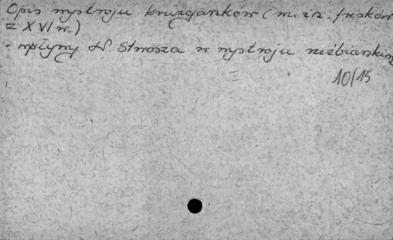 Opis wystroju krużganków (m. in. fresków
z XVI w.)
- wpływy W. Stwosza w wystroju rzeźbiarskim
10/15